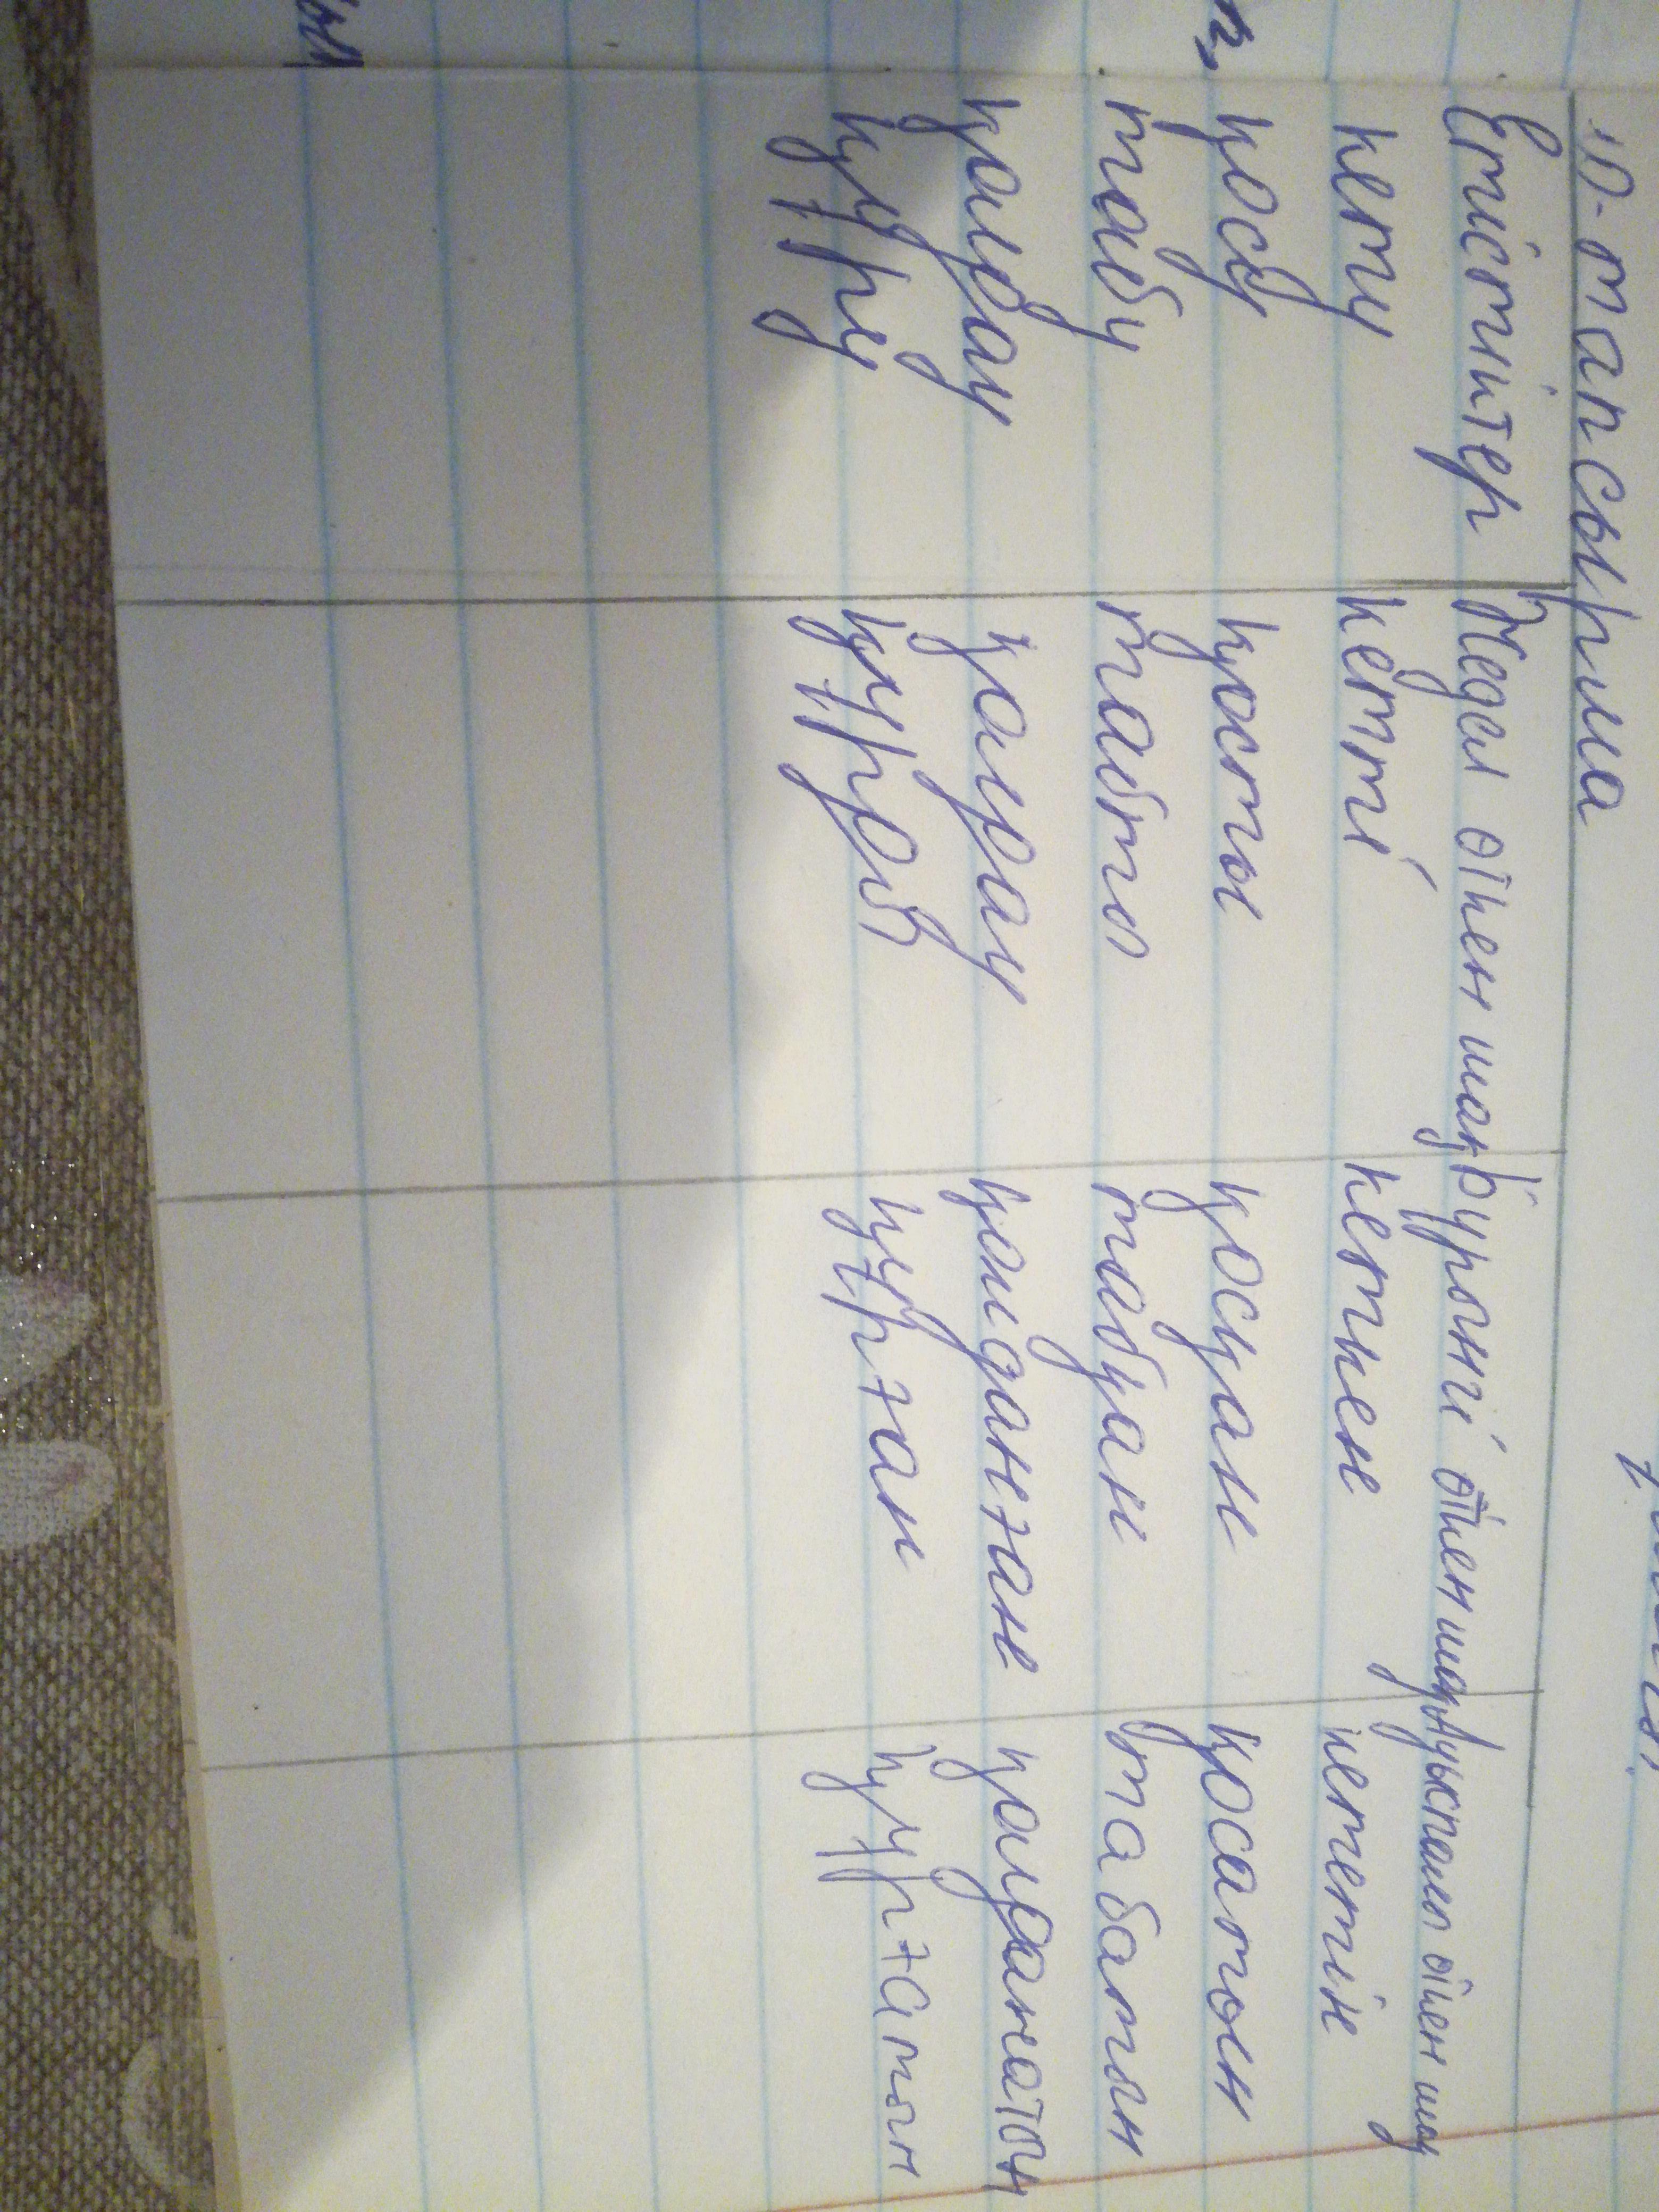 10-тапсырма
Етістіктер Жедел өткен шақ Бұрынғы өткен шақ Ауыспалы өткен шақ
кету кетті кеткен кететін
қосу қосты қосқан қосатын
табу табты табқан табатын
қолдау қолдау қолданған қолданатын
құру құрды құрған құратын